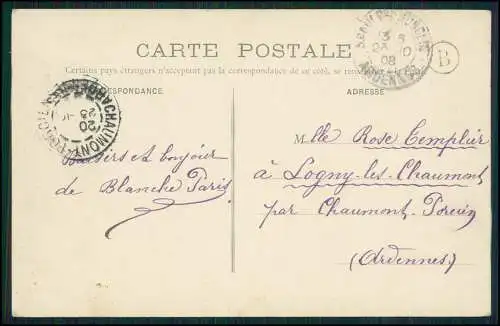 CARTE POSTALE
Certains pays étrangers n'acceptent pas la correspondance de ce côté, se
RESPONDANCE
ADRESSE
B
CHAUMONT-PORCIEN
20
08
Baisers et bonjour
de Blanche Paris
Mlle Rose Templier
à Logny-les-Chaumont
par Chaumont-Porcien
(Ardennes)